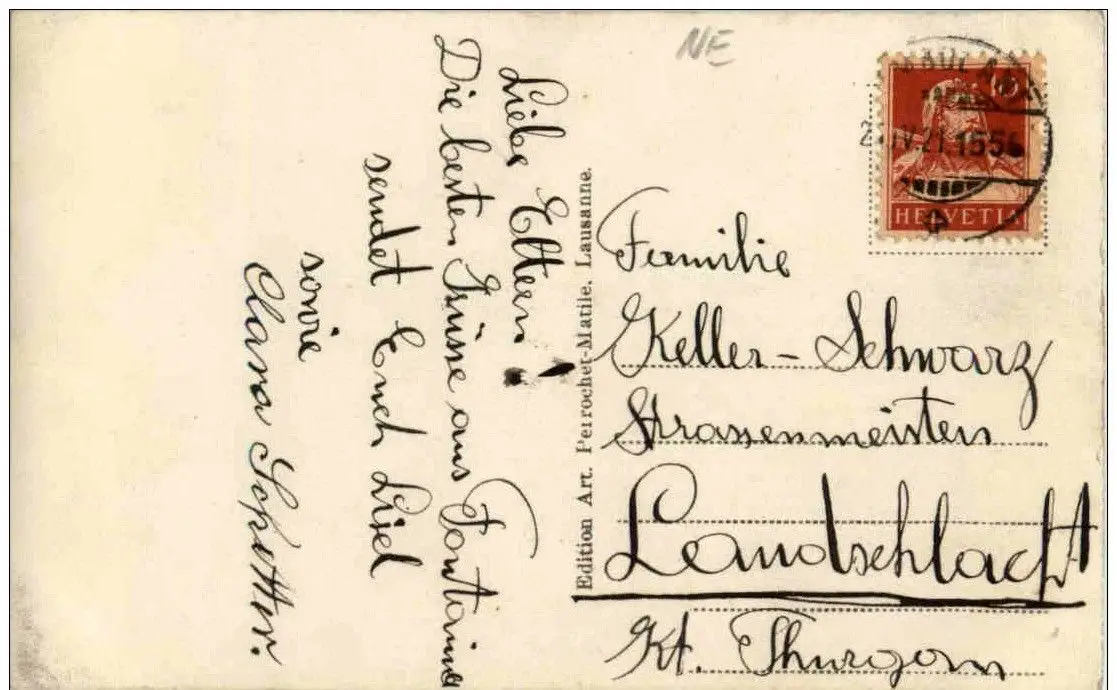 NE
10
IV.21.15
HELVETIA
Liebe Eltern!
Die besten Grüsse aus Fontaines
sendet Euch Lisel
sowie
Clara
Edition Art. Perrochet-Matile, Lausanne.
Familie
Keller-Schwarz
Strassenmeisters
Landschlacht
Kt. Thurgau